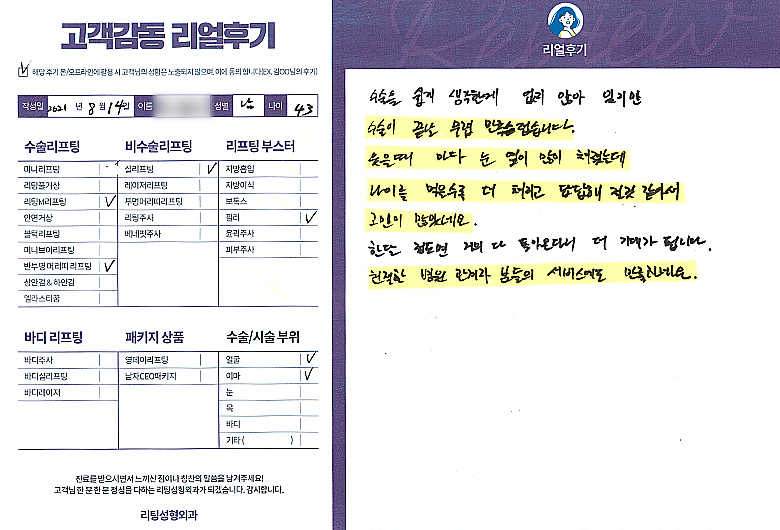 고객감동 리얼후기
해당 후기 온/오프라인에 활용 시 고객님의 성함은 노출되지 않으며, 이에 동의 합니다(EX. 김OO님의 후기)
작성일 2021 년 8 월 14일 이름 성별 남 나이 43
수술리프팅
미니리프팅
리팅풀거상
리팅M리프팅
안면거상
블럭리프팅
미니브이리프팅
반투명 머리띠 리프팅
상안검 & 하안검
엘라스티꿈
비수술리프팅
실리프팅
레이저리프팅
투명머리띠리프팅
리팅주사
베네핏주사
리프팅 부스터
지방흡입
지방이식
보톡스
필러
윤곽주사
피부주사
바디 리프팅
바디주사
바디실리프팅
바디레이저
패키지 상품
영데이리프팅
남자CEO패키지
수술/시술 부위
얼굴
이마
눈
목
바디
기타 ( )
진료를 받으시면서 느끼신 점이나 칭찬의 말씀을 남겨주세요!
고객님 한 분 한 분 정성을 다하는 리팅성형외과가 되겠습니다. 감사합니다.
리팅성형외과
리얼후기
수술을 쉽게 생각한게 없지 않아 있지만
수술이 끝난 후엔 만족스럽습니다.
젊을때 마다 눈 옆이 많이 처졌는데
나이를 먹을수록 더 처지고 답답해 질것 같아서
고민이 많았네요.
한달 정도면 거의 다 돌아온다니 더 기대가 됩니다.
친절한 병원 관계자 분들의 서비스에도 만족하네요.